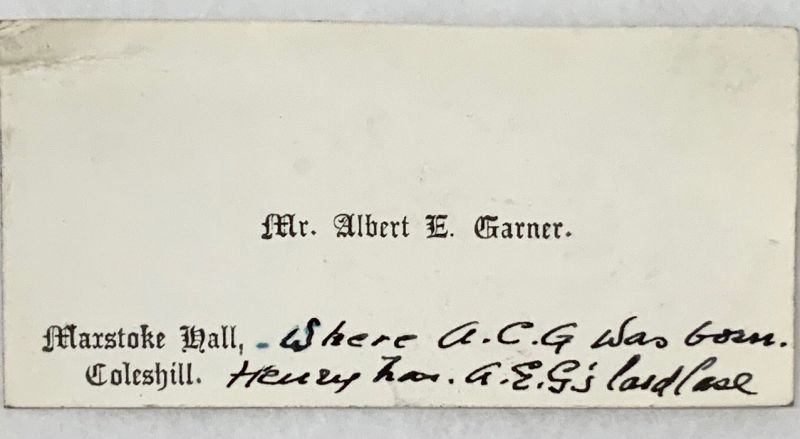 Mr. Albert E. Garner.
Maxstoke Hall, - Where A.C.G was born.
Coleshill. Henry has. A.E.G's card case